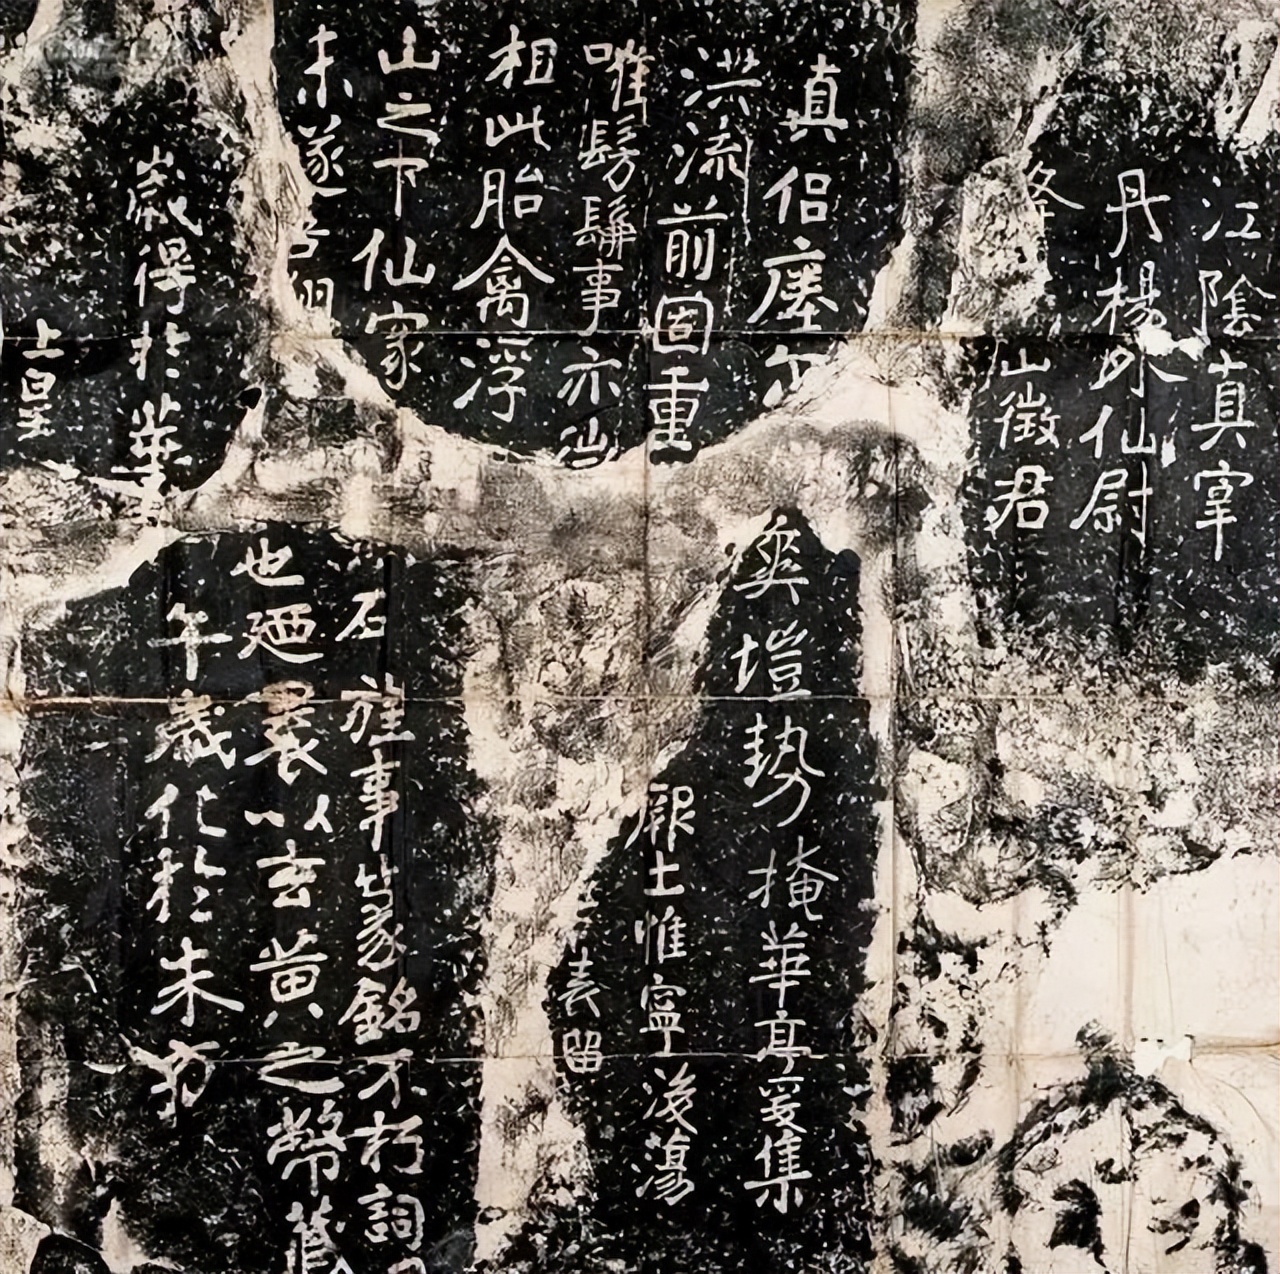 江陰真宰
丹楊外仙尉
山徵君
真侶瘞尔
洪流前固重
唯髣髴事亦
相此胎禽浮
山之下仙家
未遂吾翔
歲得於華
上皇
爽塏勢掩華亭爰集
厥土惟寧後蕩
表留
石旌事篆銘不朽詞曰
也廼裹以玄黃之幣藏
午歲化於朱方